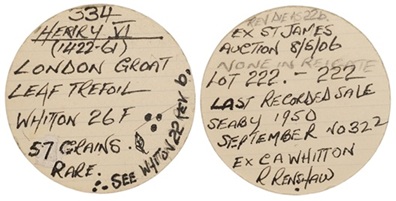 334
HENRY VI
(1422-61)
LONDON GROAT
LEAF TREFOIL
WHITTON 26F
57 GRAINS.
RARE.
SEE WHITTON 22 REV b.
REV DIE AS 22b.
EX ST JAMES
AUCTION 8/5/06
NONE IN REIGATE
LOT 222. - 222
LAST RECORDED SALE
SEABY 1950
SEPTEMBER NO 322
EX C A WHITTON
R RENSHAW